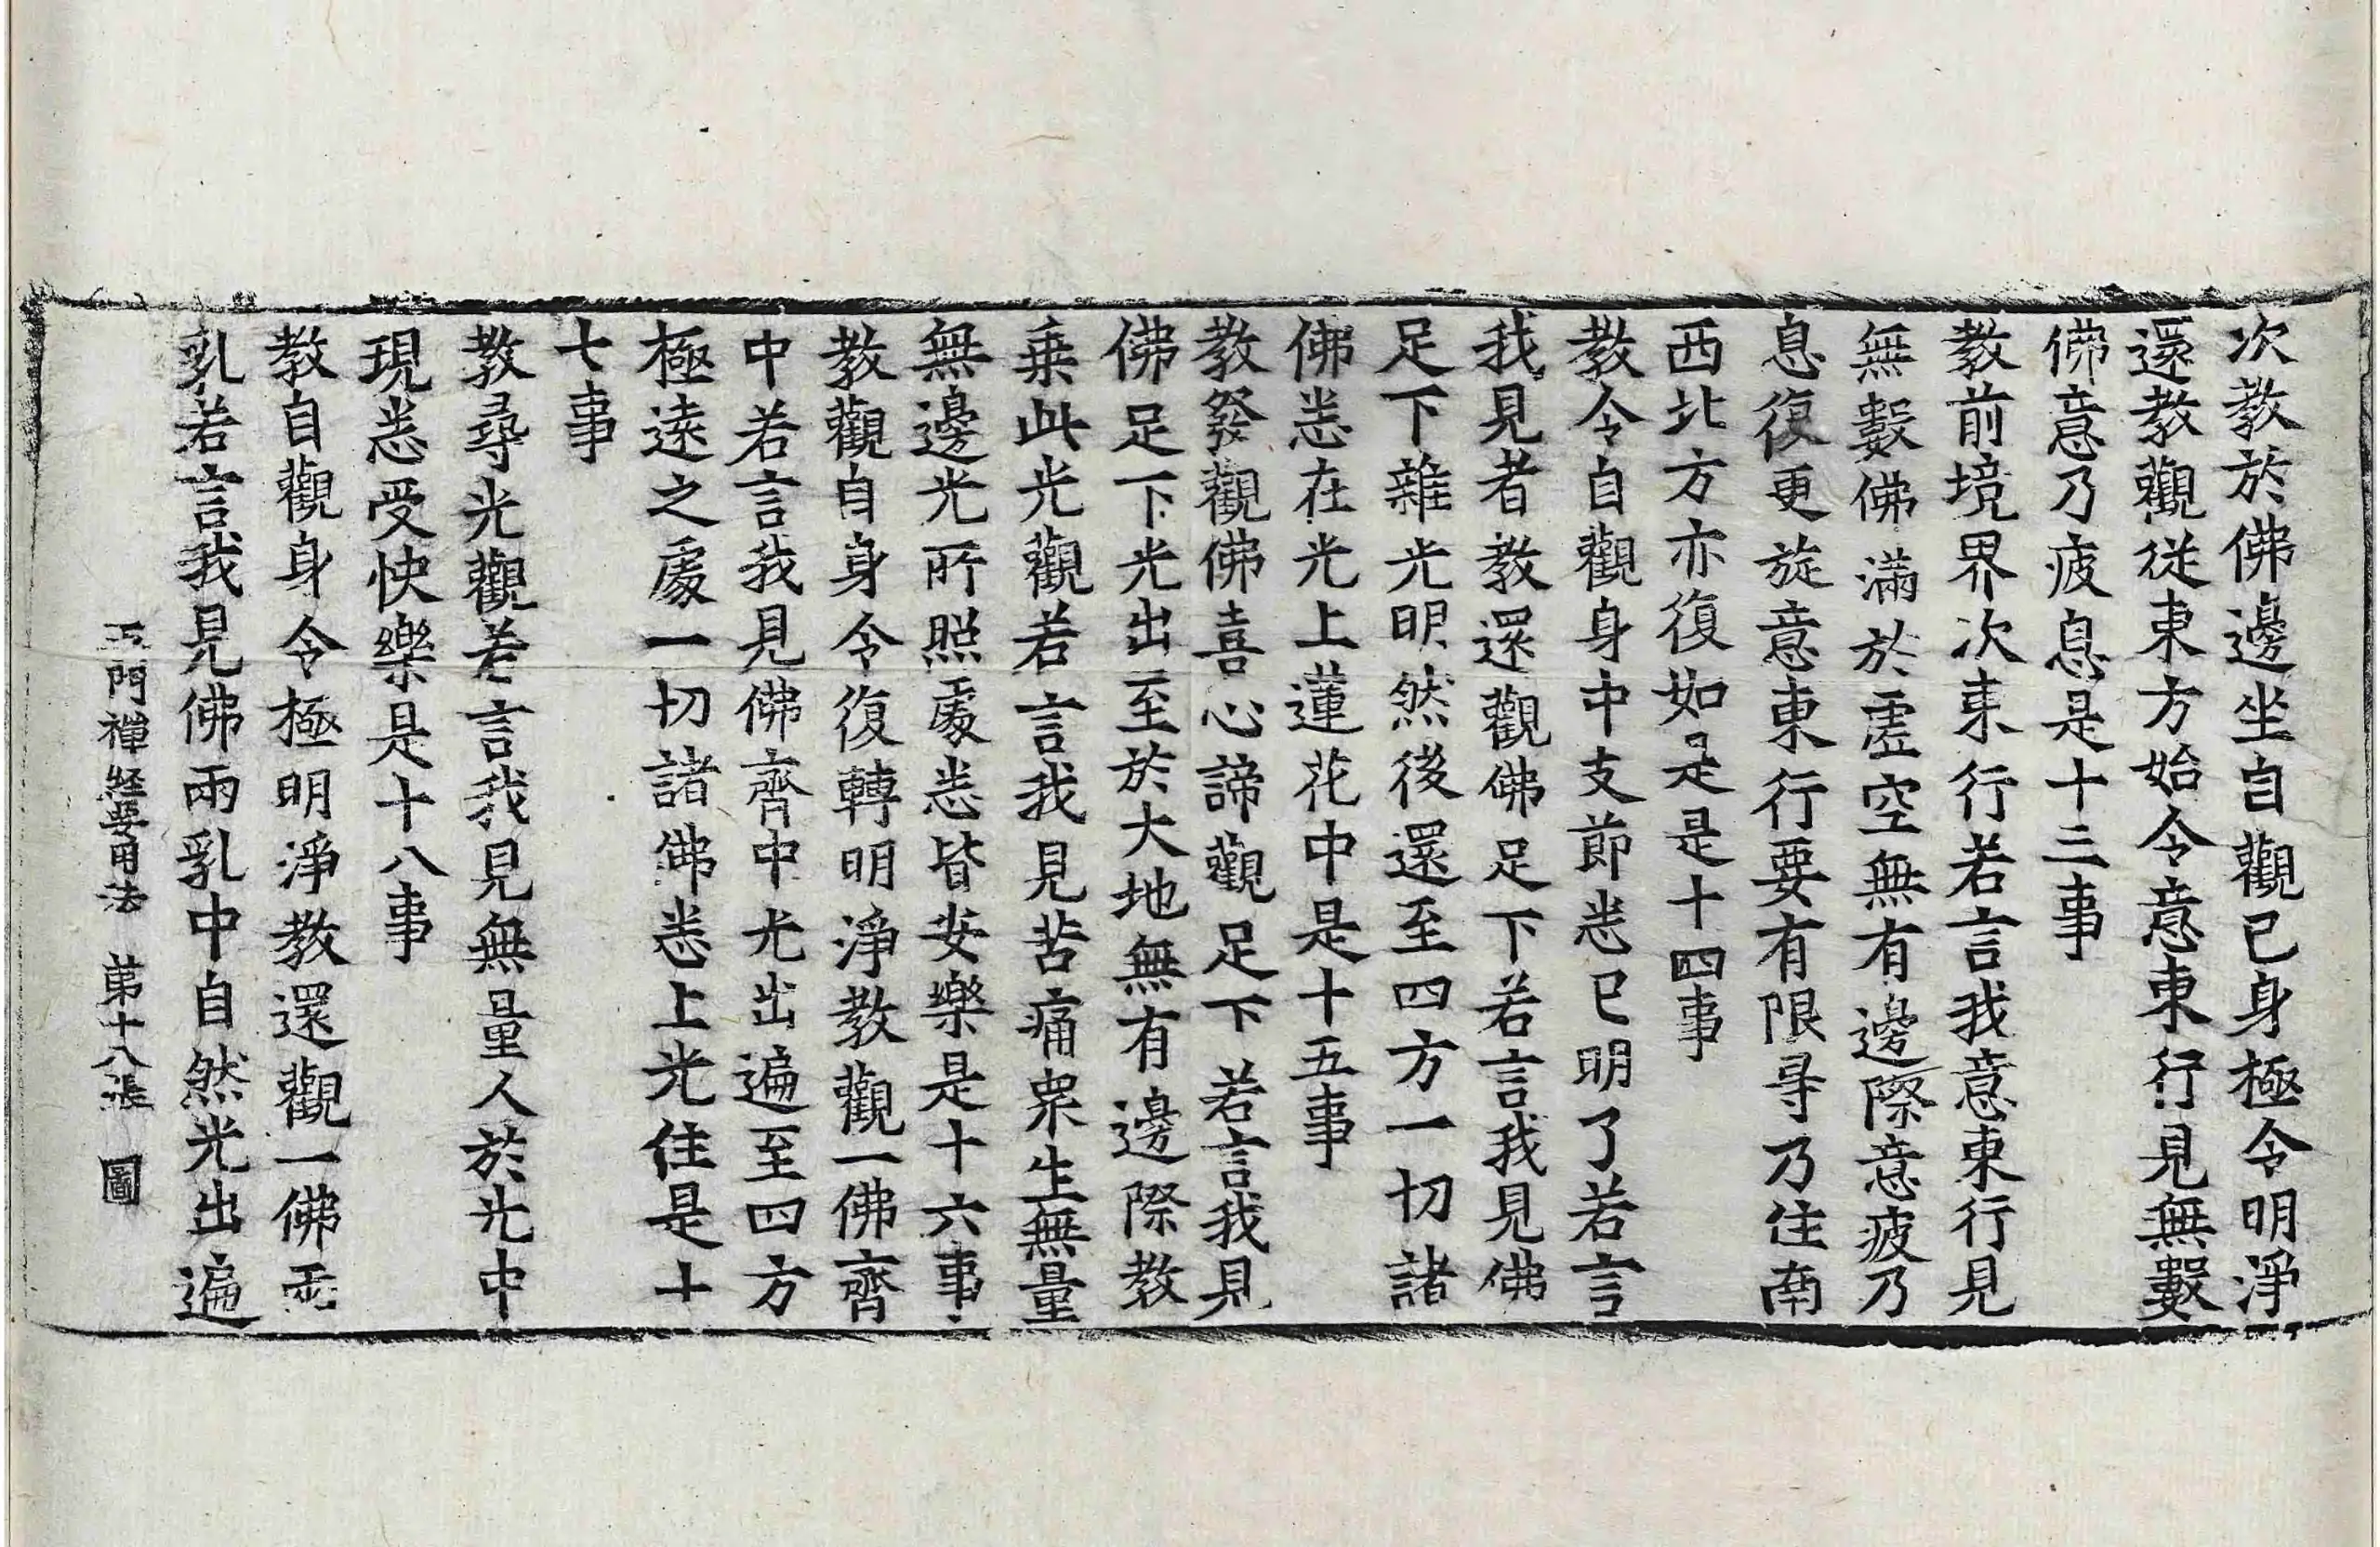 次教於佛邊坐自觀己身極令明淨
還教觀從東方始令意東行見無數
佛意乃疲息是十三事
教前境界次東行若言我意東行見
無數佛滿於虛空無有邊際意疲乃
息復更旋意東行要有限㝷乃住南
西北方亦復如是是十四事
教令自觀身中支節悉已明了若言
我見者教還觀佛足下若言我見佛
足下雜光明然後還至四方一切諸
佛悉在光上蓮花中是十五事
教發觀佛喜心諦觀足下若言我見
佛足下光出至於大地無有邊際教
乗此光觀若言我見苦痛衆生無量
無邊光所照處悉皆安樂是十六事
教觀自身令復轉明淨教觀一佛齊
中若言我見佛齊中光出遍至四方
極遠之處一切諸佛悉上光住是十
七事
教尋光觀若言我見無量人於光中
現悉受快樂是十八事
教自觀身令極明淨教還觀一佛兩
乳若言我見佛兩乳中自然光出遍
五門禪経要用法 第十八張 圖